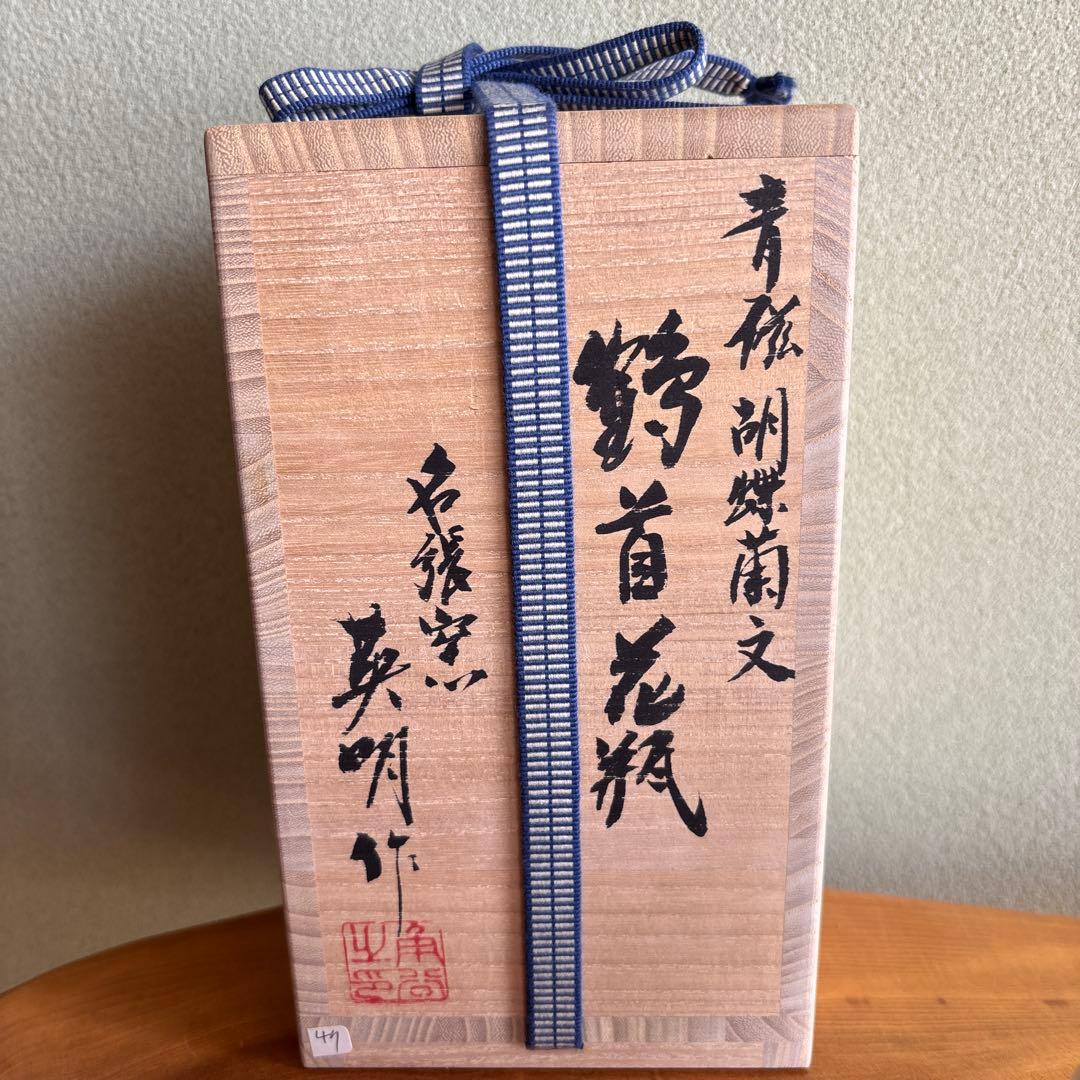 青磁 胡蝶蘭文
鶴首花瓶
名張窯
英明作
47